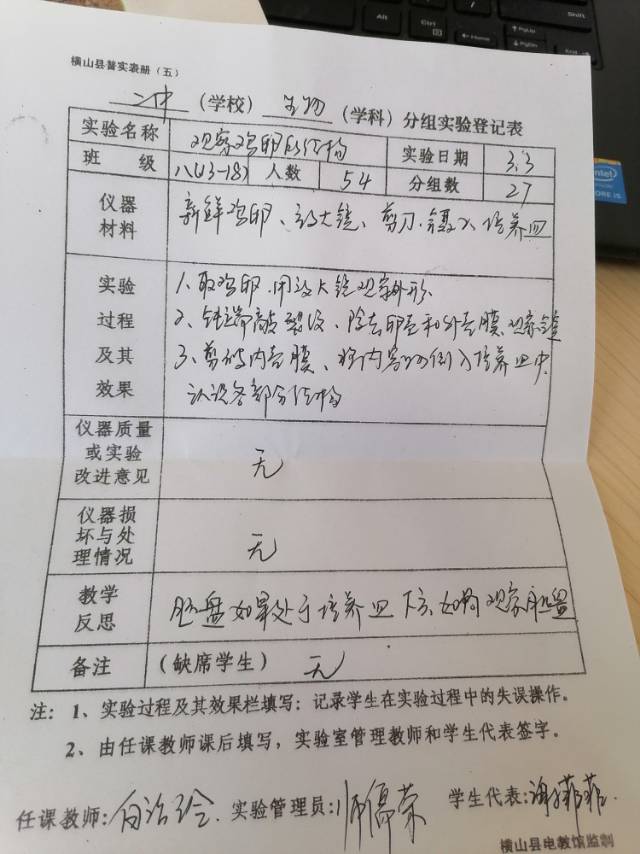 横山县普实表册（五）
二中（学校） 生物（学科）分组实验登记表
实验名称 观察鸡卵的结构 实验日期 3.3
班级 八(13-18) 人数 54 分组数 27
仪器材料 新鲜鸡卵、放大镜、剪刀、镊子、培养皿
实验 1、取鸡卵.用放大镜观察外形
过程 2、钝端敲裂后、除去卵壳和外壳膜、观察
及其 3、剪破内壳膜、将内容物倒入培养皿中
效果 认识各部分结构
仪器质量
或实验 无
改进意见
仪器损
坏与处 无
理情况
教学
反思 胚盘如果处于培养皿下方、如何观察
备注 （缺席学生） 无
注：1、实验过程及其效果栏填写：记录学生在实验过程中的失误操作。
2、由任课教师课后填写，实验室管理教师和学生代表签字。
任课教师: 实验管理员: 学生代表:谢菲菲
横山县电教馆监制
Alt
Ctrl
PgUp
Home
PgDn
End
intel
CORE i5